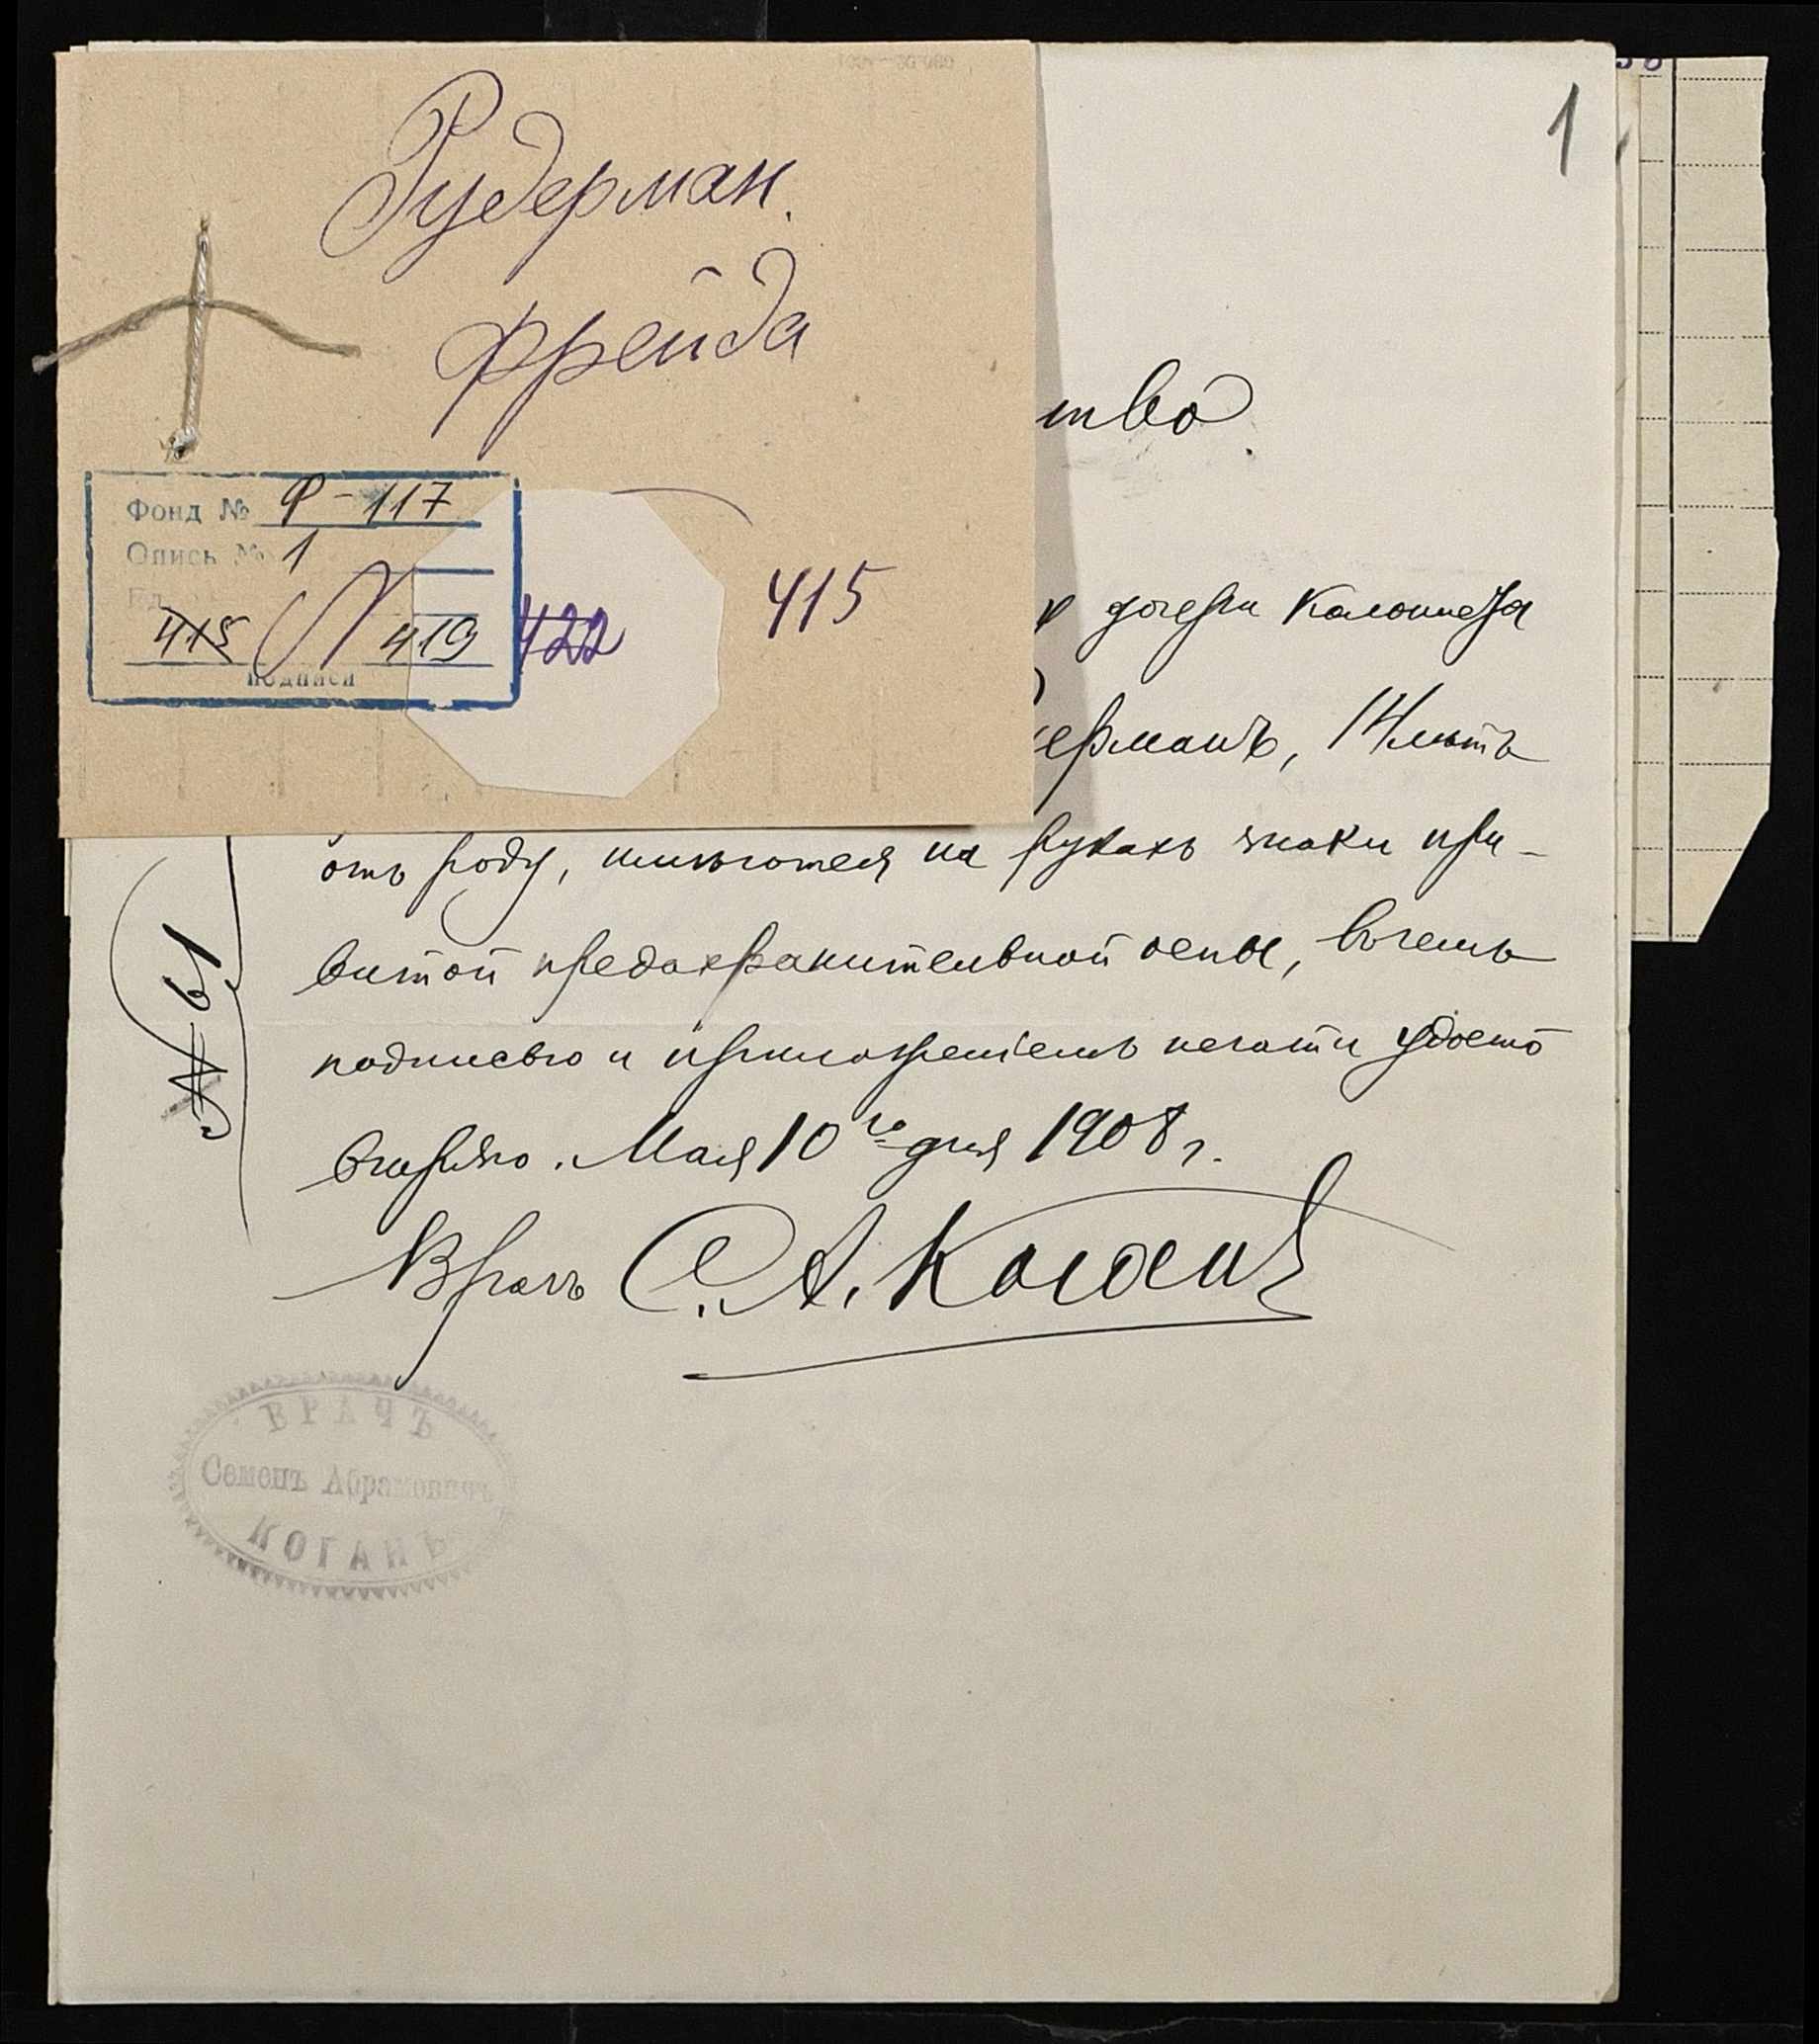 Рудерман.
Фрейда
Фонд № Ф-117
Опись № 1
Ед.
415 419 422
подписи
415
1
тво.
дочери колониста
дерманъ, 14 лѣтъ
отъ роду, имѣются на рукахъ знаки при-
витой предохранительной оспы, въ чемъ
подписью и приложеніемъ печати удосто
вѣряю. Мая 10го дня 1908 г.
№ 61
Врачъ С. А. Коганъ
ВРАЧЪ
Семенъ Абрамовичъ
КОГАНЪ